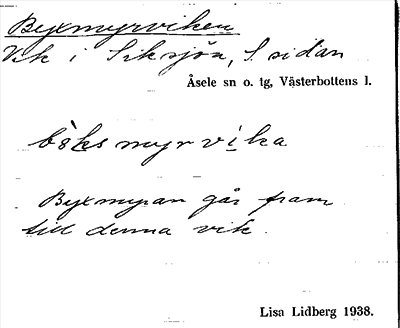 Byxmyrviken
Vik i Siksjön, S sidan
Åsele sn o. tg, Västerbottens l.
myrvika
Byxmyran går fram
till denna vik.
Lisa Lidberg 1938.